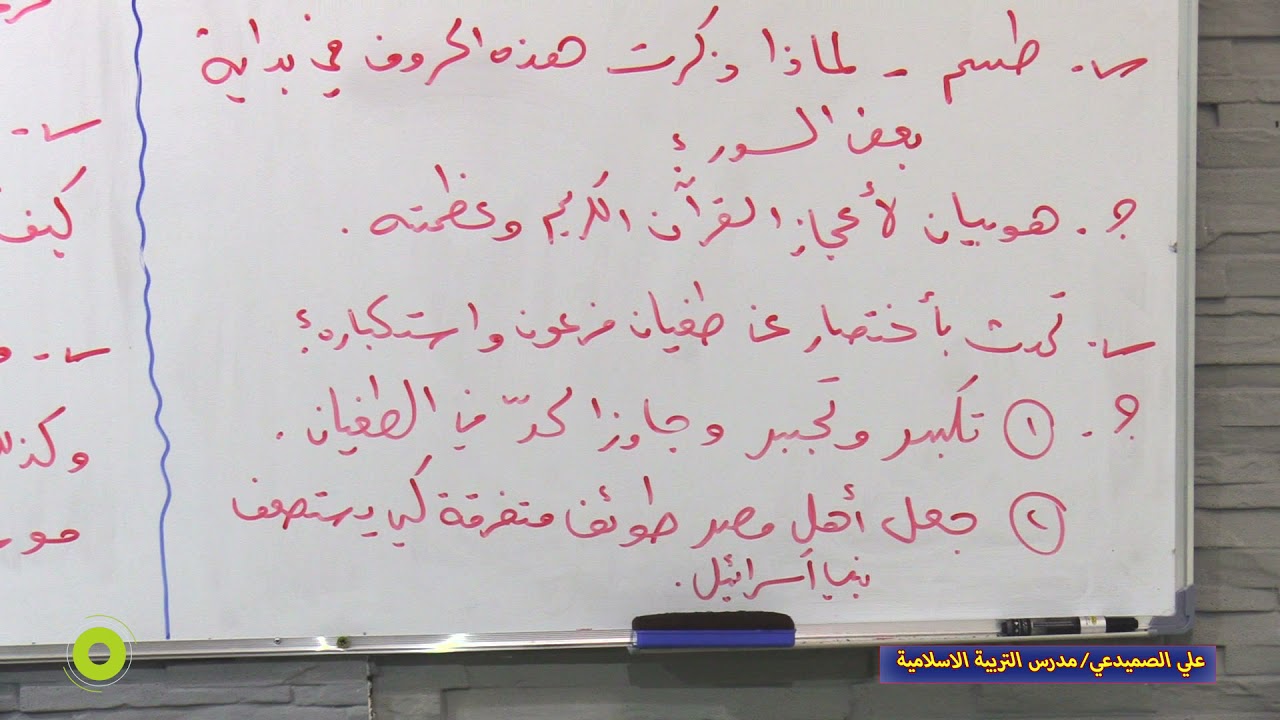 س. طسم - لماذا ذكرت هذه الحروف في بداية
بعض السور؟
ج. هو بيان لأعجاز القرآن الكريم وعظمته.
س. تحدث بأختصار عن طغيان فرعون واستكباره؟
ج. ١ تكبر وتجبر وجاوز الحدّ في الطغيان.
٢ جعل أهل مصر طوائف متفرقة كي يستضعف
بني أسرائيل.
س.
كيف
س.
وكذلك
علي الصميدعي/مدرس التربية الاسلامية